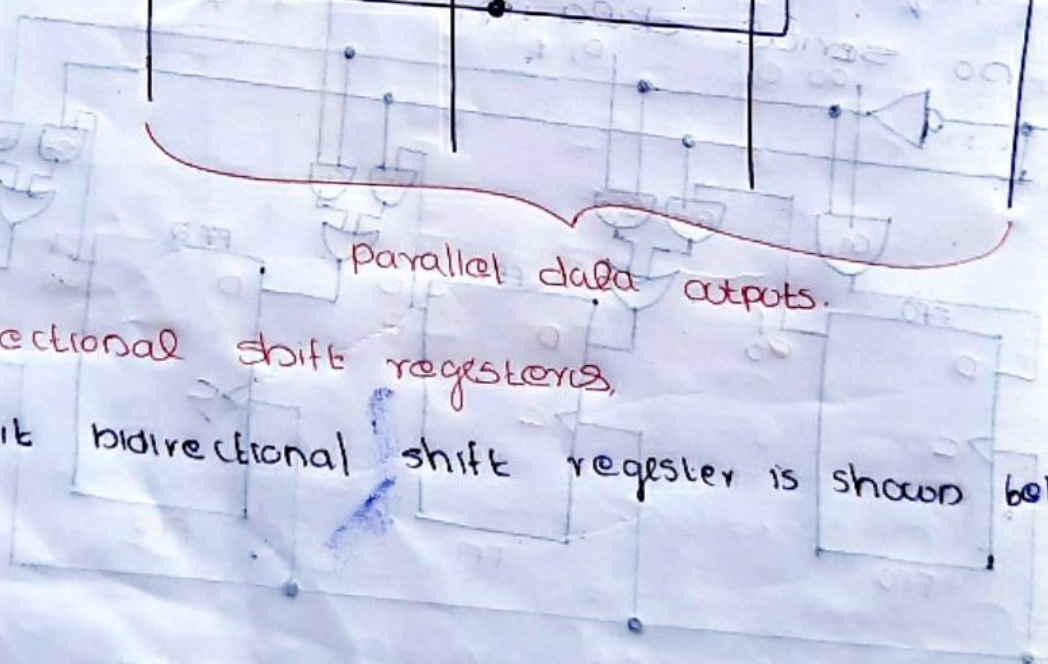 parallel data outputs.
ectional shift registers,
it bidirectional shift regester is shown be